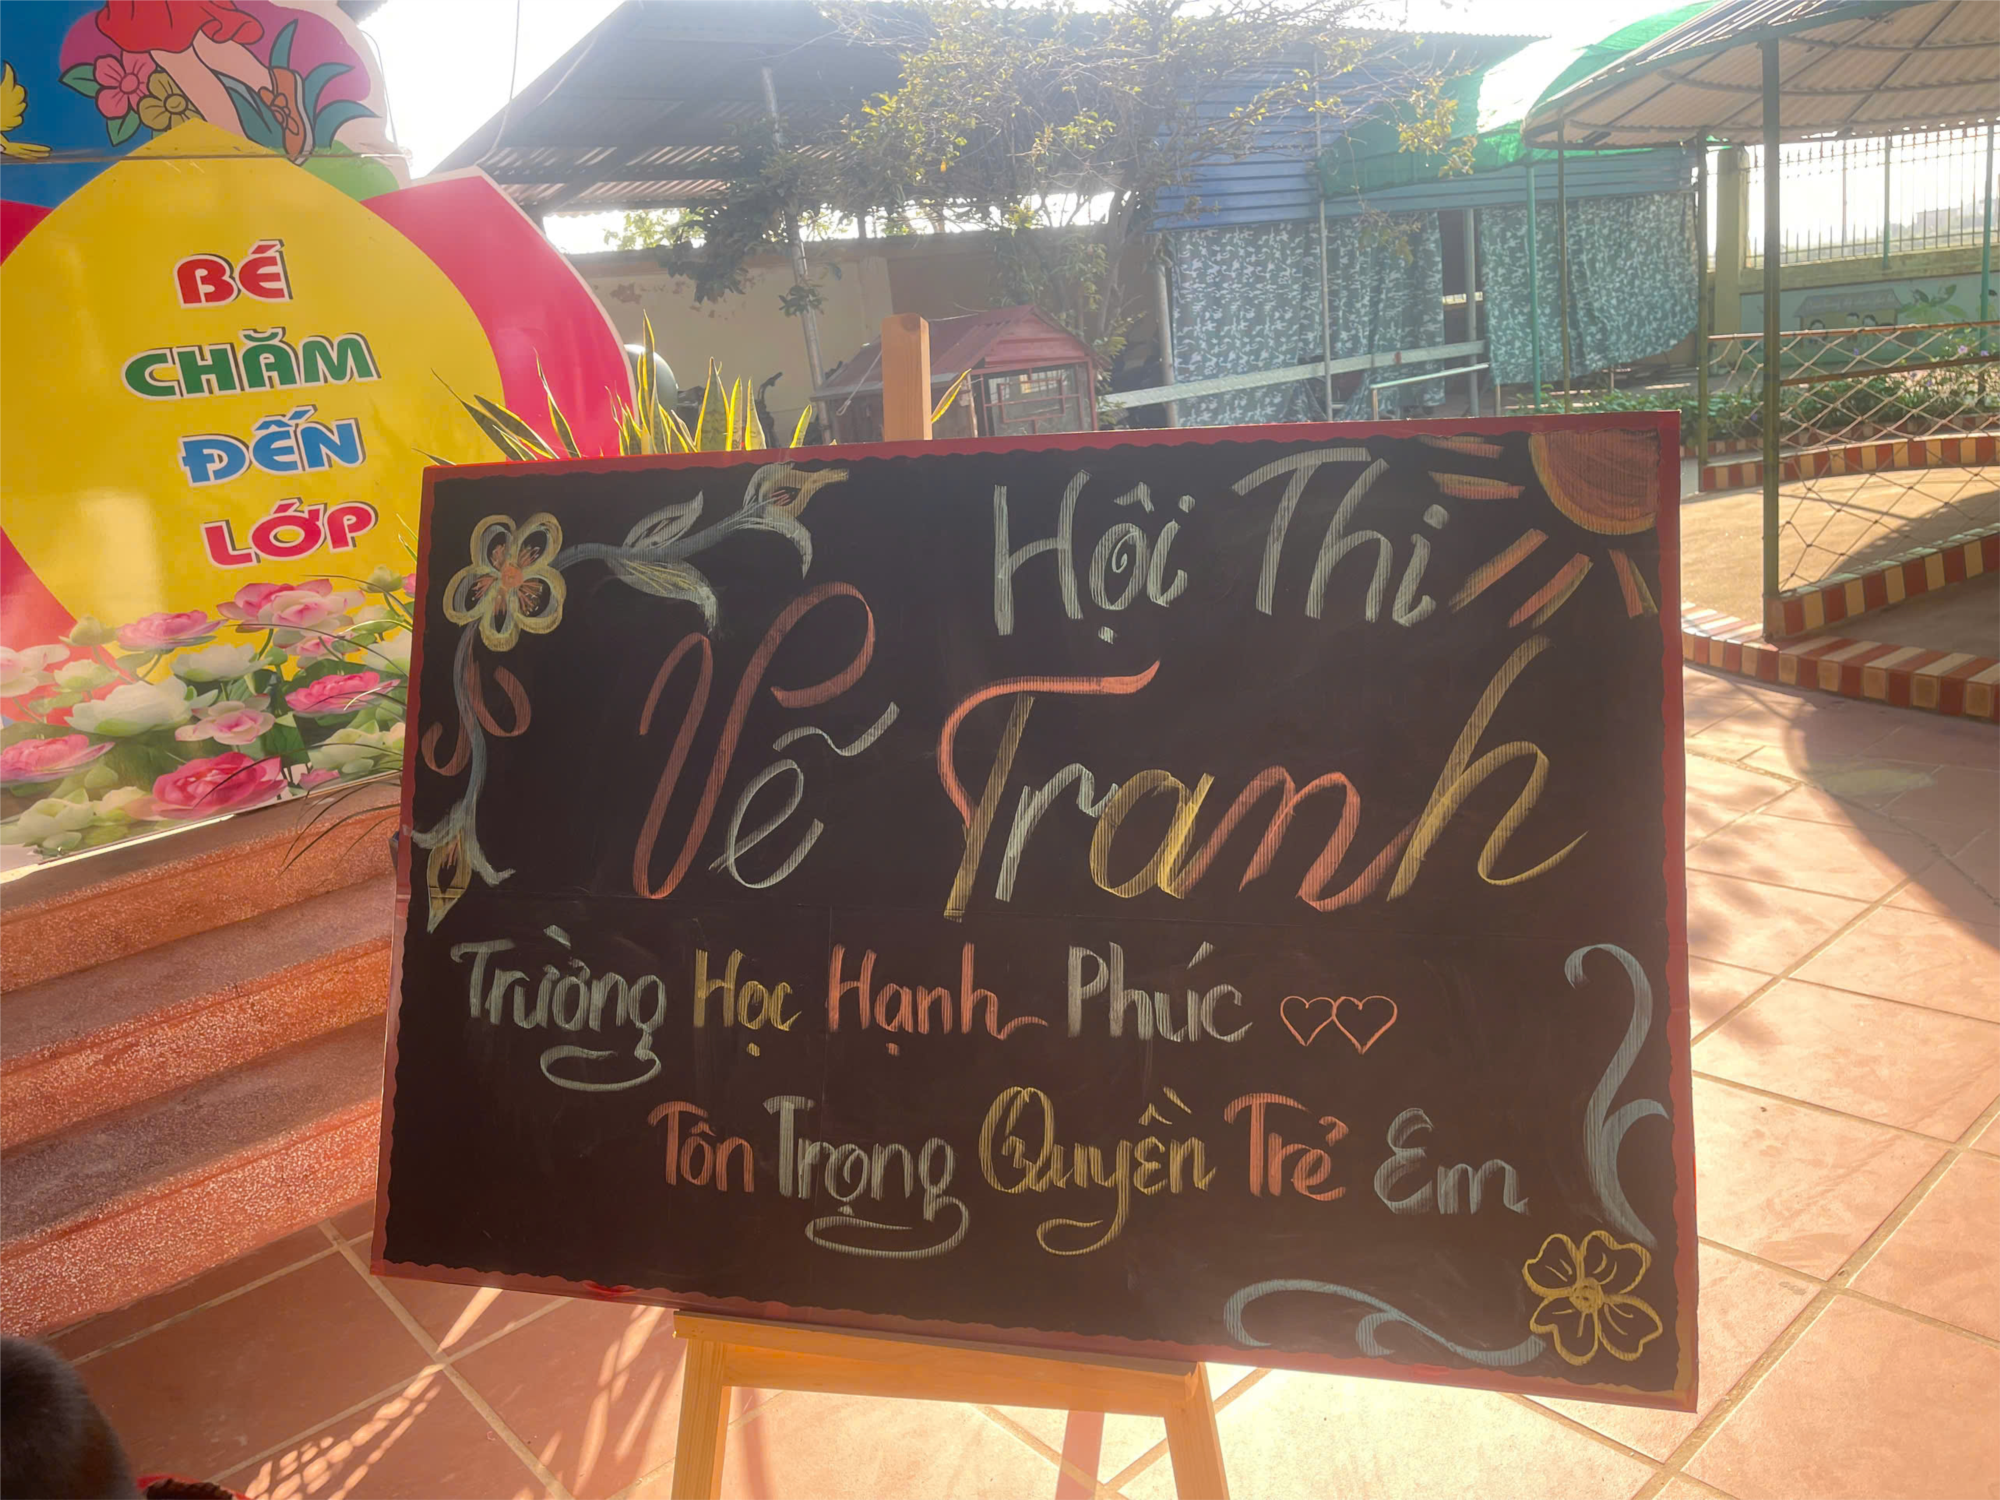 BÉ
CHĂM
ĐẾN
LỚP
Hội Thi
Vẽ Tranh
Trường Học Hạnh Phúc
Tôn Trọng Quyền Trẻ Em